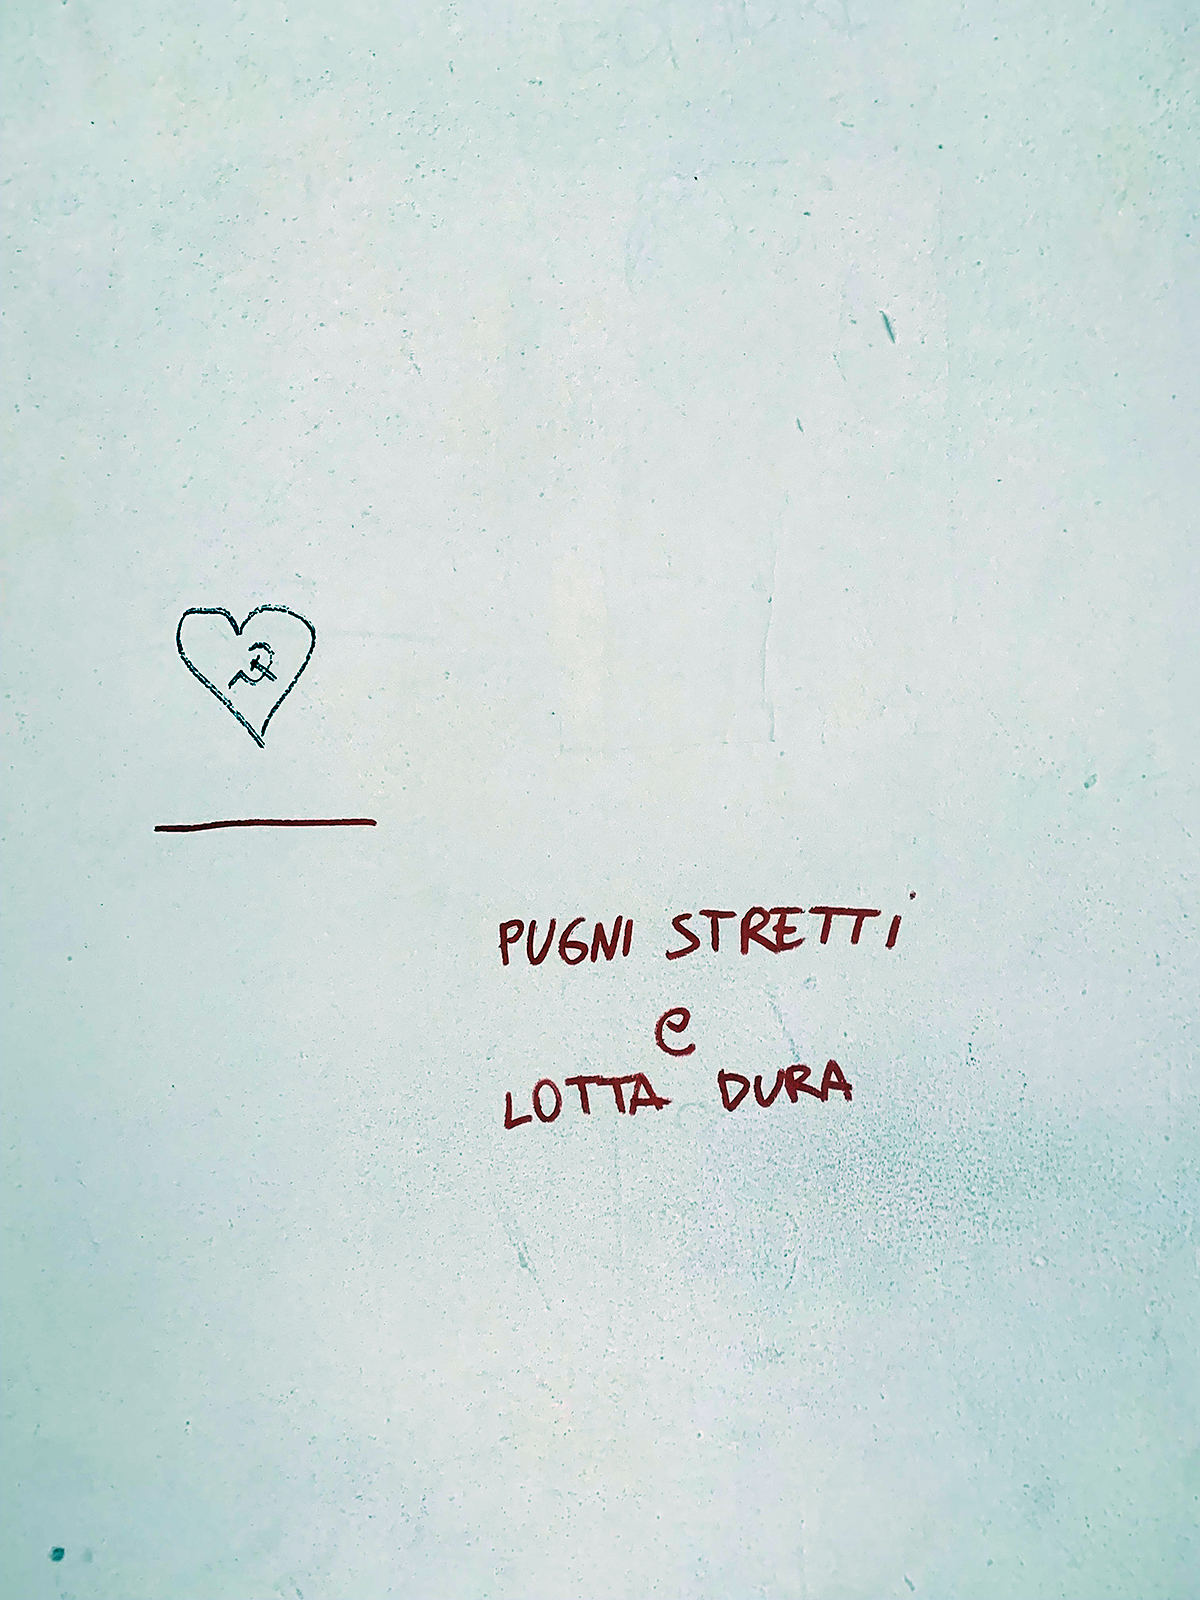 PUGNI STRETTi
e
LOTTA DURA